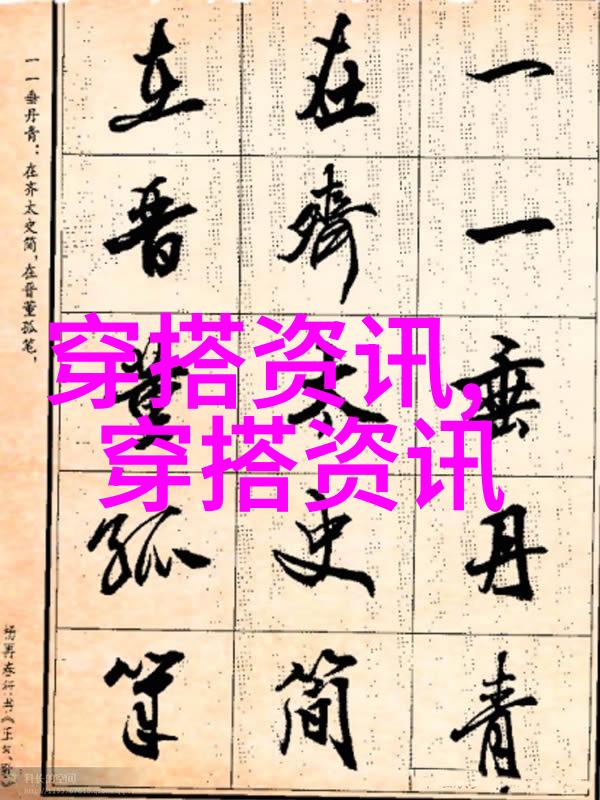 一一垂丹青
在齐太史简
在晋董狐笔
一一垂丹青：在齐太史简，在晋董狐笔，
穿搭资讯，
穿搭资讯
科长的空间